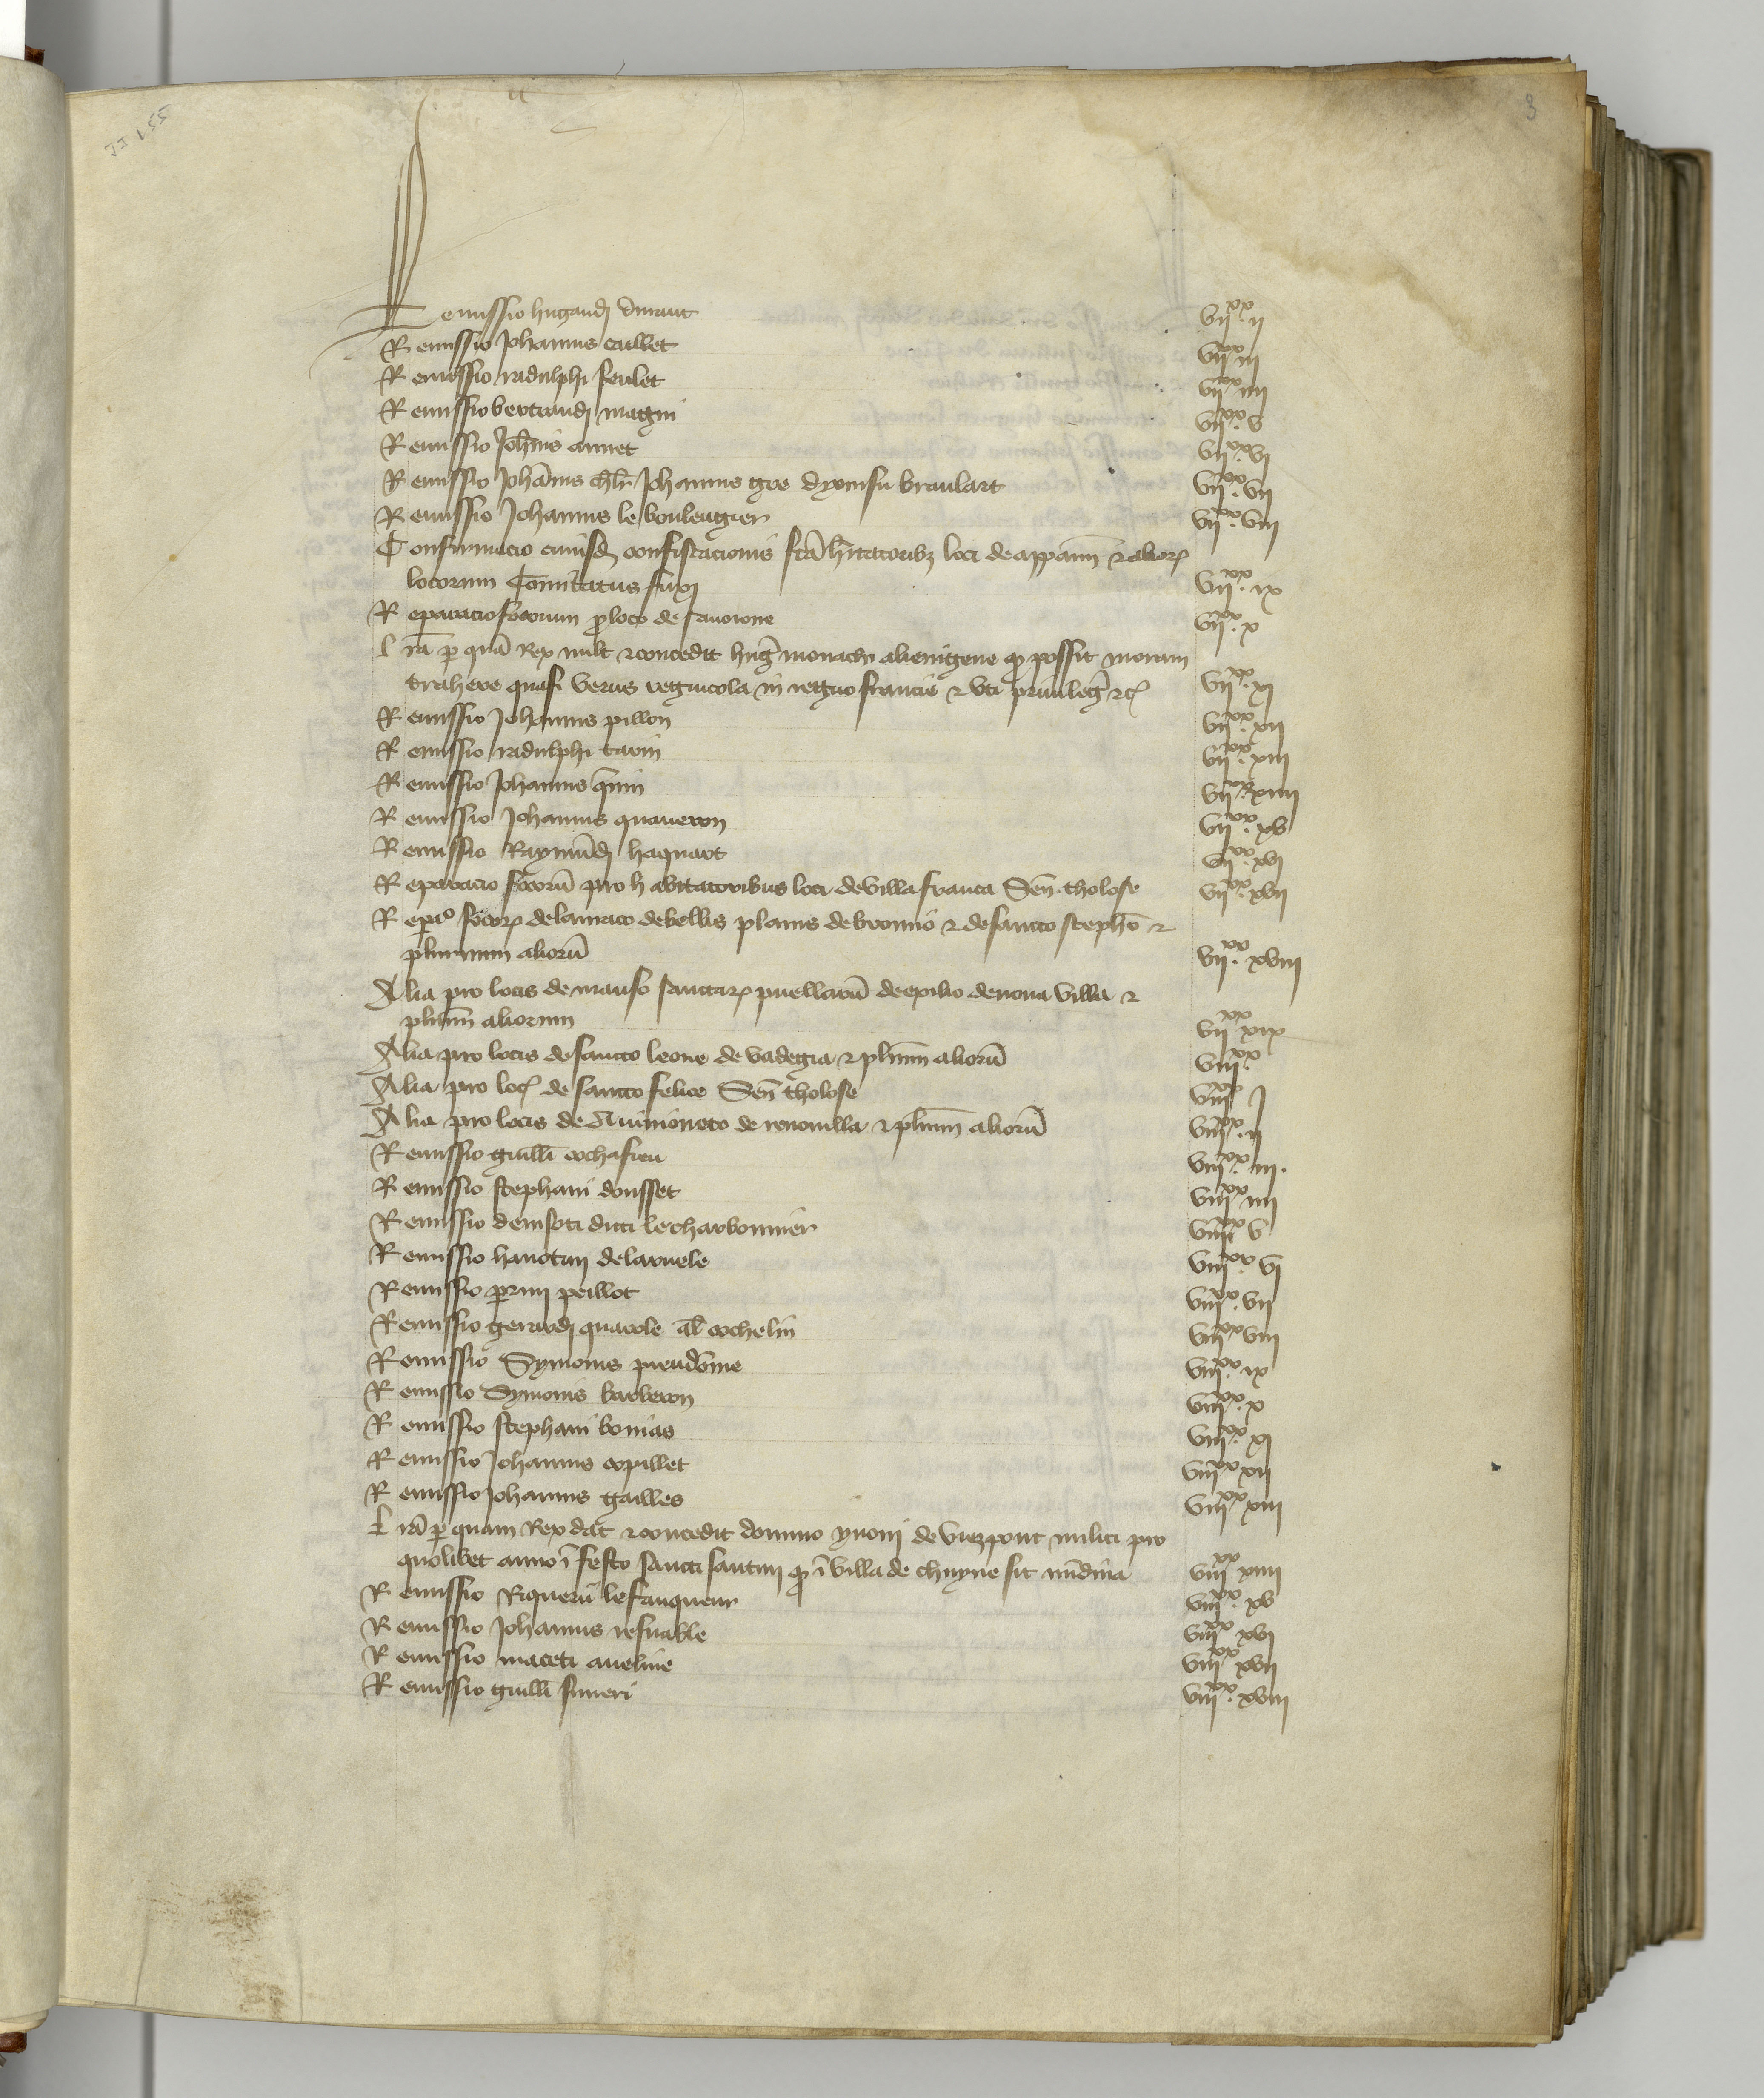 JJ 155
3
Remissio hugandj durant vii xx. ii
Remissio Johannis caillet vii xx iii
Remissio radulphi seulet vii xx iiii
Remissio bertrandj magni vii xx. v
Remissio Johānis annet vii xx vi
Remissio Johānis Johannis gos dyonisii braulart vii xx. vii
Remissio Johannis le boulengier vii xx. viii
Confirmacio cuiusd confiscacionis fcā hītatoribz loci de appam̄ ⁊ alior
locorum Comitatus fuxi vii xx. ix
Reparacio focorum pro loco de vii xx. x
lrā p quā Rex vult ⁊ concedit hug monachi alienigene q possit moram
trahere quasi verus regnicola in regno francie ⁊ uti priuileg ⁊c vii xx. xi
Remissio Johannis pillon vii xx. xii
Remissio radulphi tarin vii xx. xiii
Remissio Johannis vii xx. xiiii
Remissio Johannis quaueron vii xx. xv
Remissio Raymūdj haquart vii xx. xvi
Reparacio focorū pro habitatoribus loci de villa franca Sen̄. tholose vii xx. xvii
Repaco focor de lauraco de bellis planis de bromio ⁊ de sancto stephō ⁊
plurimum aliorū vii xx. xviii
Alia pro locis de manso sanctar puellarū de exilio de noua villa ⁊
plurim̄ aliorum vii xx xix
Alia pro locis de sancto leone de vadegia ⁊ plurim̄ aliorū viii xx.
Alia pro loc de sancto felice Sen̄ tholose viii xx j
Alia pro locis de Auinioneto de renouilla ⁊ plurim̄ aliorū viii xx. ii
Remissio guilli cochasieu viii xx. iii.
Remissio stephani dousset viii xx iiii
Remissio denisoti dicti lecharbonnier viii xx v
Remissio hanotini delaruele viii xx. vi
Remissio perrini peillot viii xx. vii
Remissio gerardj quarole al cochelin viii xx viii
Remissio Symonis preudōme viii xx. ix
Remissio Symonis barberon viii xx. x
Remissio stephani bonias viii xx. xi
Remissio Johannis copillet viii xx xii
Remissio Johannis gailles viii xx xiii
Lrā p quam Rex dat ⁊ concedit domino yuonj de viezpont militi pro
quolibet anno ī festo sancti santini q ī villa de chuyne sit nūdina viii xx xiiii
Remissio Riquerii lefauqueur viii xx. xv
Remissio Johannis resnable viii xx xvi
Remissio maceti aueline viii xx xvii
Remissio guilli fumeri viii xx. xviii